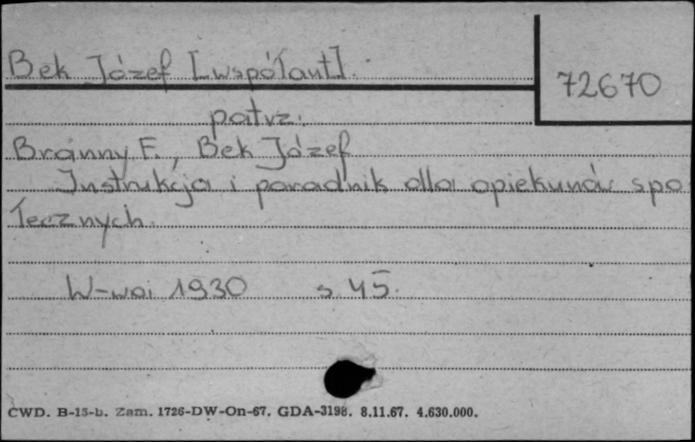 Bek Józef [współaut].
72670
patrz.
Branny F., Bek Józef
Instrukcja i poradnik dla opiekunów spo
łecznych.
W-wa 1930 s. 45.
CWD. B-15-b. Zam. 1726-DW-On-67. GDA-3198. 8.11.67. 4.630.000.